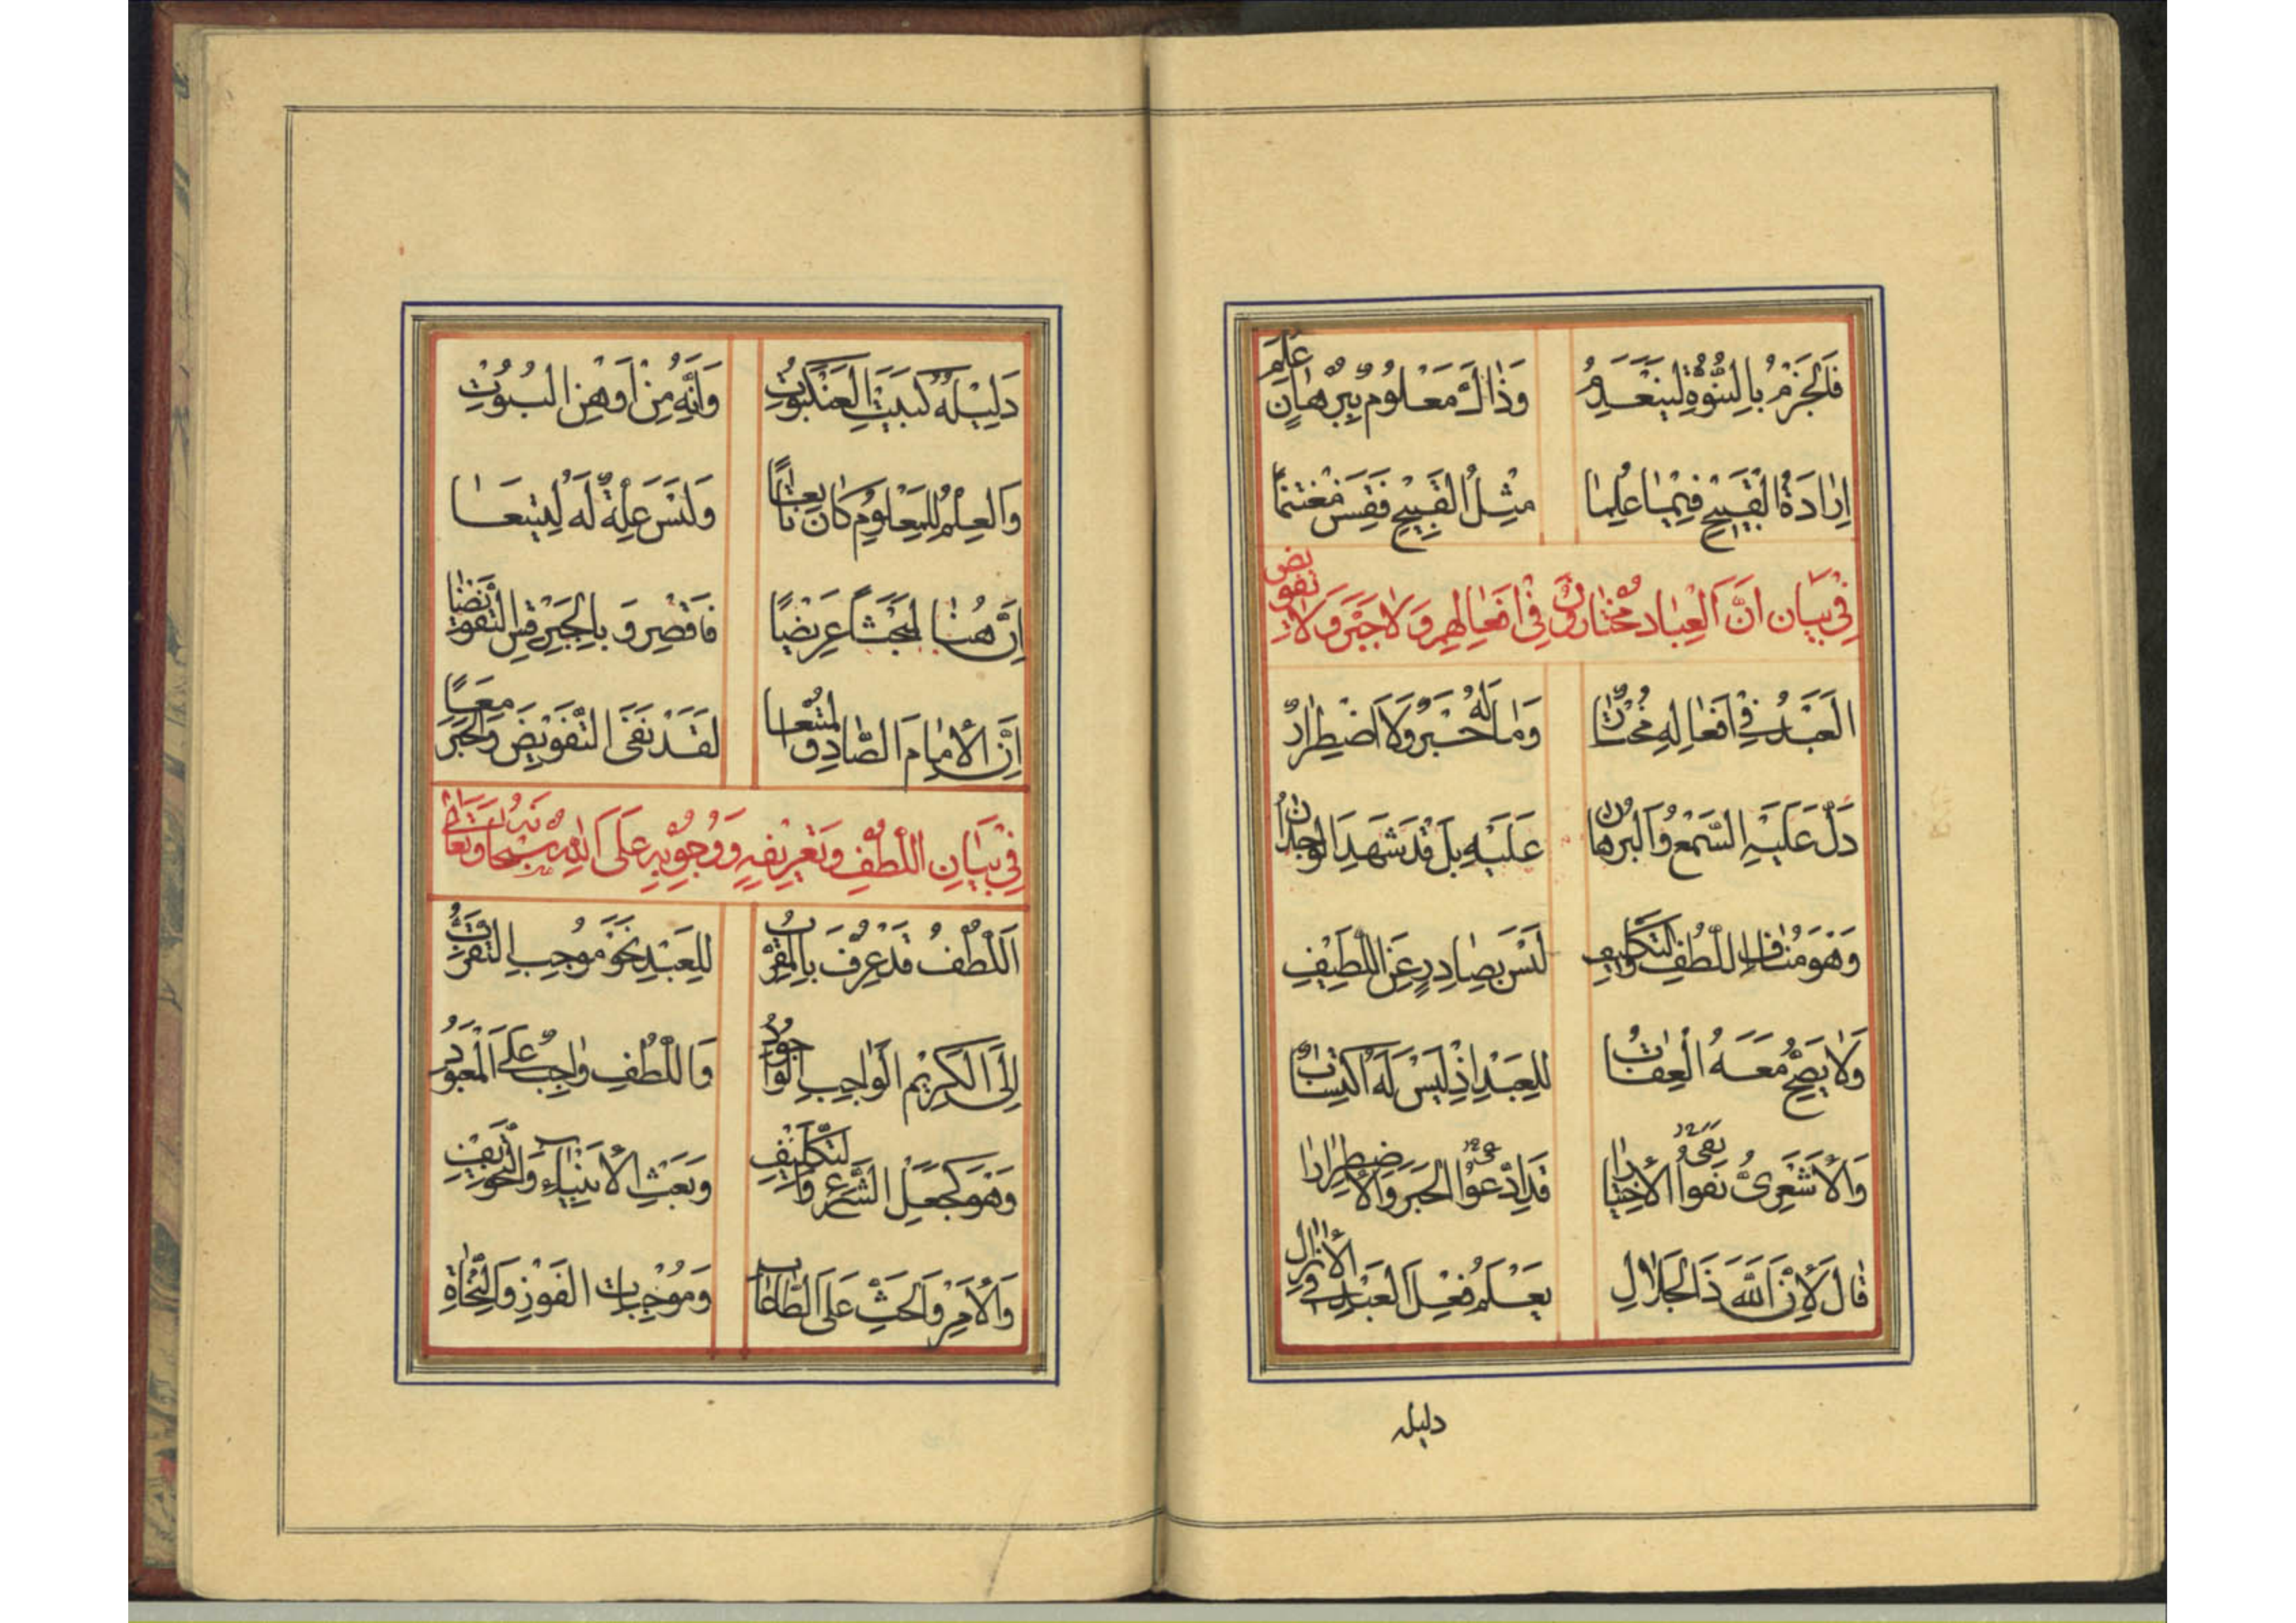 فَالْجَزْمُ بِالنُّبُوَّةِ لَيَنْعَدِمُ وَذَاكَ مَعْلُومٌ بِبُرْهَانٍ عُلِمَ
إِرَادَةُ الْقَبِيحِ فِيمَا عُلِمَا مِثْلُ الْقَبِيحِ فَقِسَنْ مُغْتَنِمًا
فِي بَيَانِ أَنَّ الْعِبَادَ مُخْتَارُونَ فِي أَفْعَالِهِمْ وَلَا جَبْرَ وَلَا تَفْوِيضَ
الْعَبْدُ فِي أَفْعَالِهِ مُخْتَارٌ وَمَا لَهُ جَبْرٌ وَلَا اضْطِرَارٌ
دَلَّ عَلَيْهِ السَّمْعُ وَالْبُرْهَانُ عَلَيْهِ بَلْ قَدْ شَهِدَ الْوِجْدَانُ
وَهُوَ مُنَافٍ اللُّطْفَ وَالتَّكْلِيفِ لَيْسَ بِصَادِرٍ عَنِ اللَّطِيفِ
وَلَا يَصِحُّ مَعَهُ الْعِقَابُ لِلْعَبْدِ إِذْ لَيْسَ لَهُ اكْتِسَابٌ
وَالْأَشْعَرِيُّ نَفَوُا الْاخْتِيَارَا قَدِ ادَّعَوُا الْجَبْرَ وَالْاضْطِرَارَا
قَالَ لِأَنَّ اللهَ ذَا الْجَلَالِ يَعْلَمُ فِعْلَ الْعَبْدِ فِي الْأَزَالِ
دليله
دَلِيلُهُ كَبَيْتِ الْعَنْكَبُوتِ وَأَنَّهُ مِنْ أَوْهَنِ الْبُيُوتِ
وَالْعِلْمُ لِلْمَعْلُومِ كَانَ تَابِعًا وَلَيْسَ عِلَّةً لَهُ لِيَتْبَعَا
إِنَّ هُنَا لَبَحْثًا عَرِيضًا فَاقْصِرْ وَبِالْجَبْرِ قِسِ التَّفْوِيضَا
إِنَّ الْإِمَامَ الصَّادِقَ لَقَدْ نَفَى التَّفْوِيضَ وَالْجَبْرَ مَعًا
فِي بَيَانِ اللُّطْفِ وَتَعْرِيفِهِ وَوُجُوبِهِ عَلَى اللهِ سُبْحَانَهُ وَتَعَالَى
اَللُّطْفُ قَدْ عُرِفَ بِالْمُقَرِّبِ لِلْعَبْدِ نَحْوَ مُوجِبِ التَّقَرُّبِ
إِلَى الْكَرِيمِ الْوَاجِبِ الْوُجُودُ وَاللُّطْفِ وَاجِبٌ عَلَى الْمَعْبُودِ
وَهُوَ كَجَعْلِ الشَّرْعِ وَالتَّكْلِيفِ وَبَعْثِ الْأَنْبِيَاءِ وَالتَّخْوِيفِ
وَالْأَمْرِ وَالْحَثِّ عَلَى الطَّاعَاتِ وَمُوجِبَاتِ الْفَوْزِ وَالنَّجَاةِ